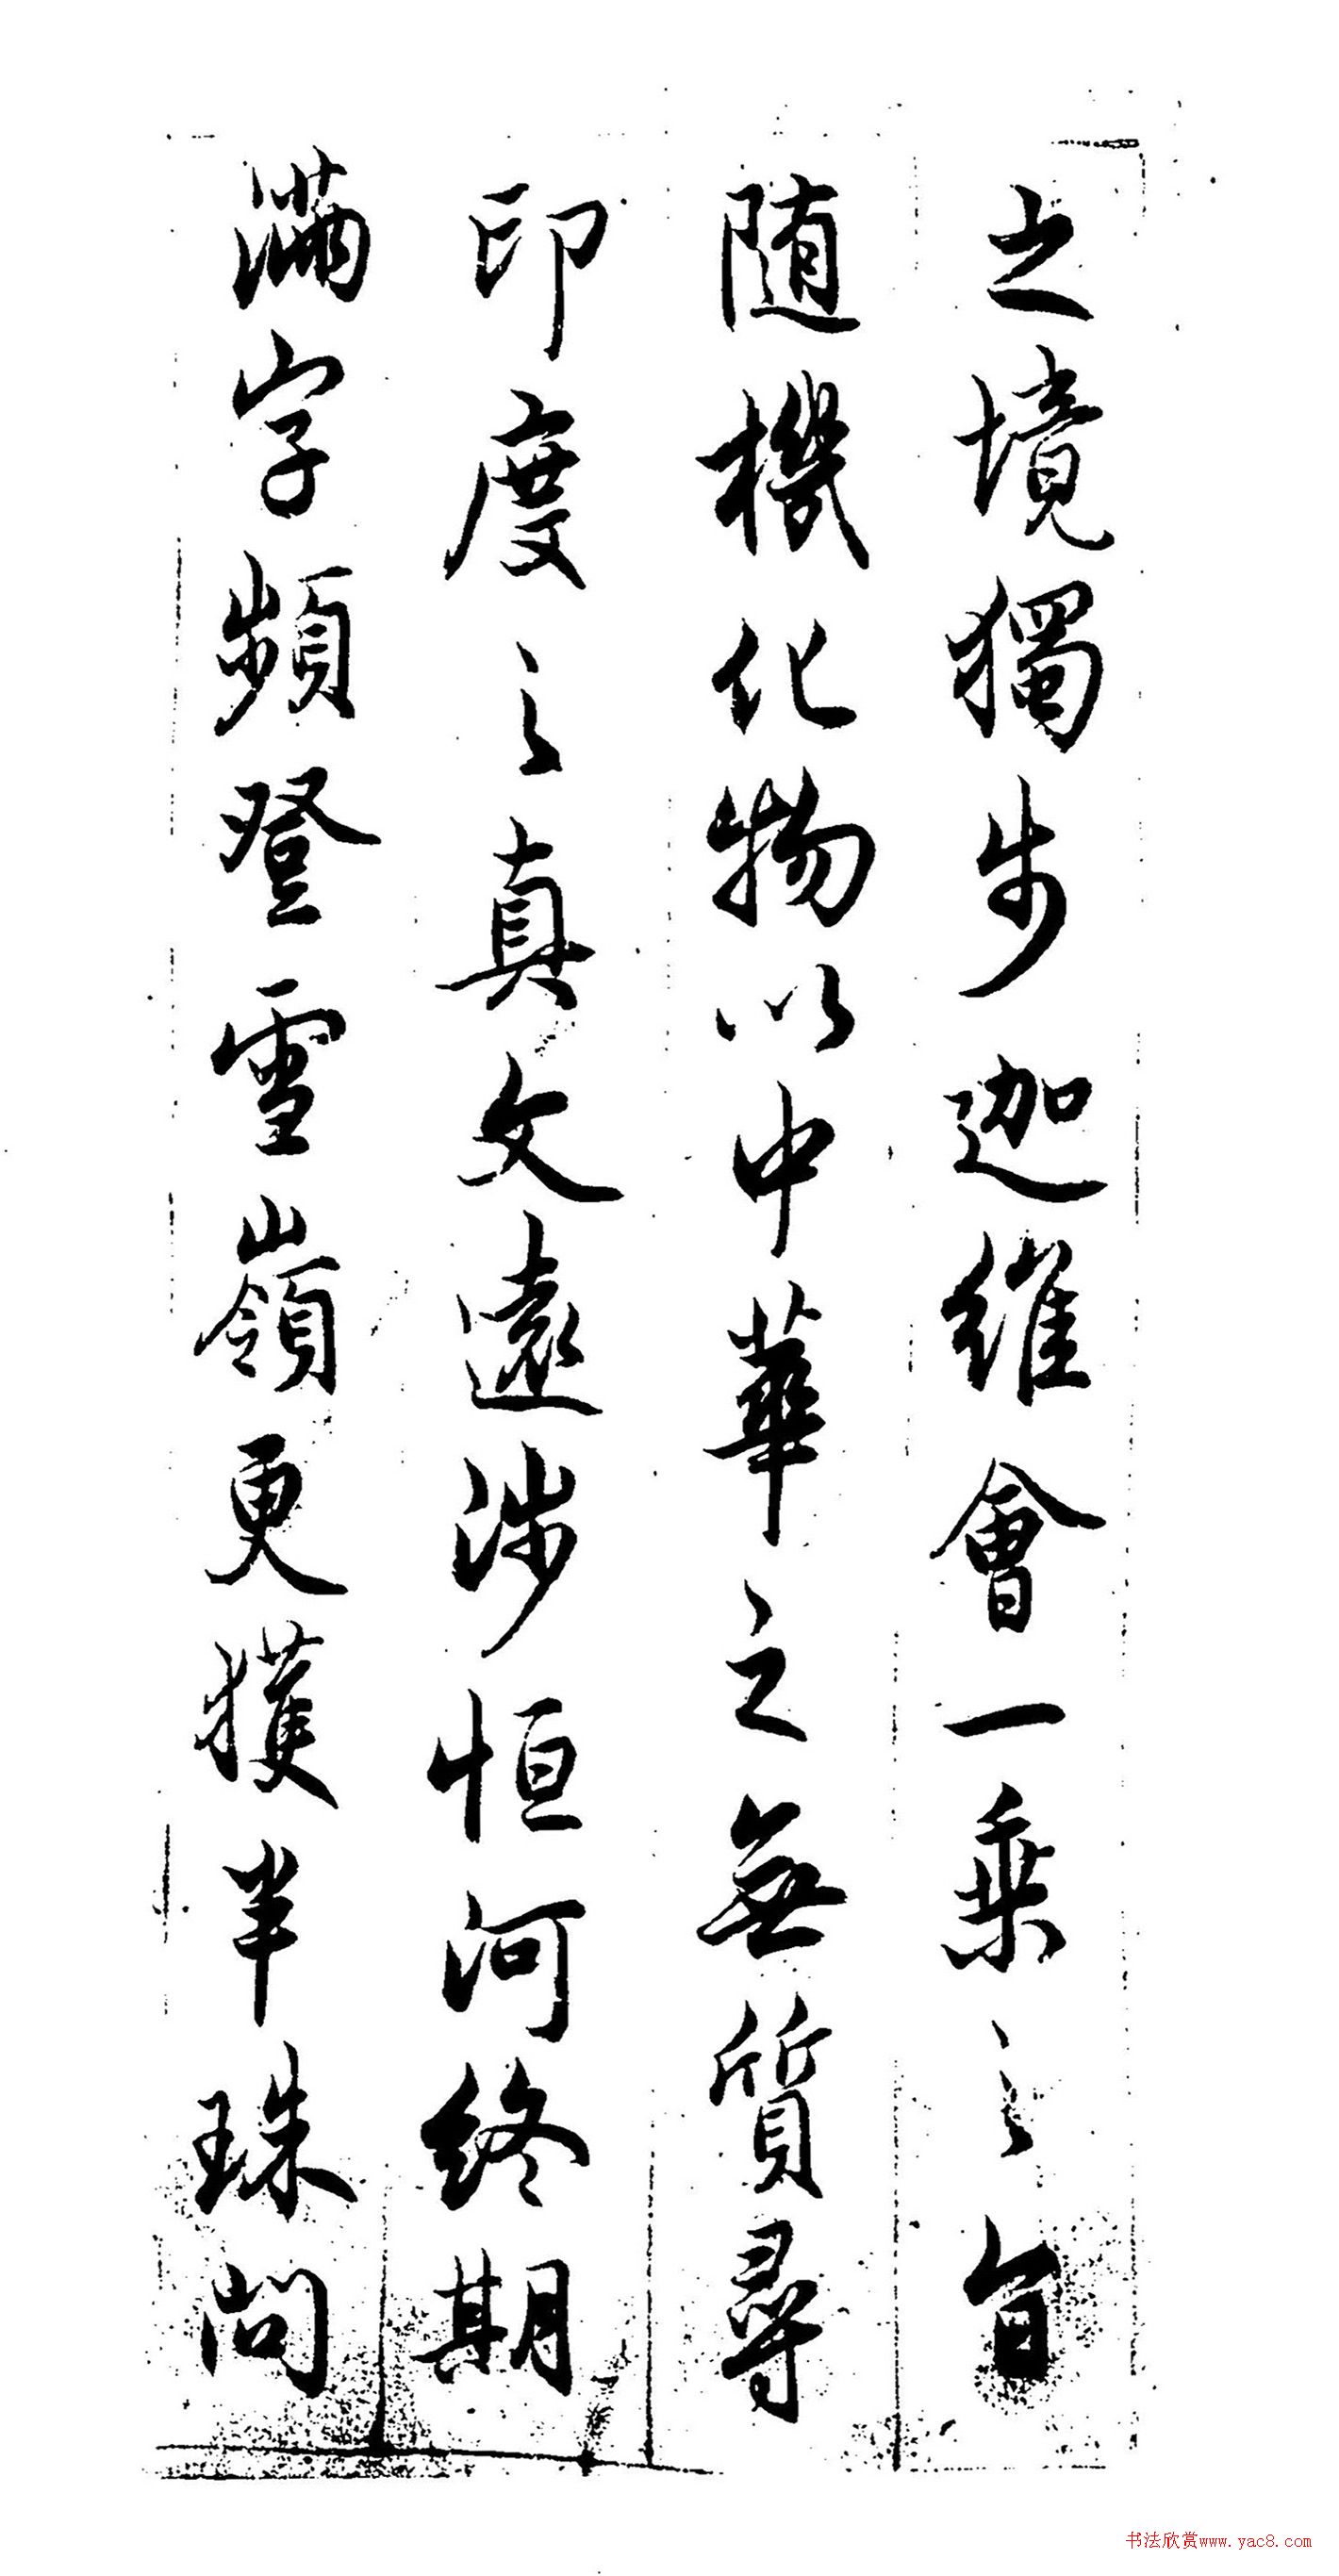 之境獨步迦維會一乗之旨
随機化物以中華之無質尋
印度之真文遠涉恒河終期
滿字頻登雪嶺更獲半珠問
书法欣赏www.yac8.com